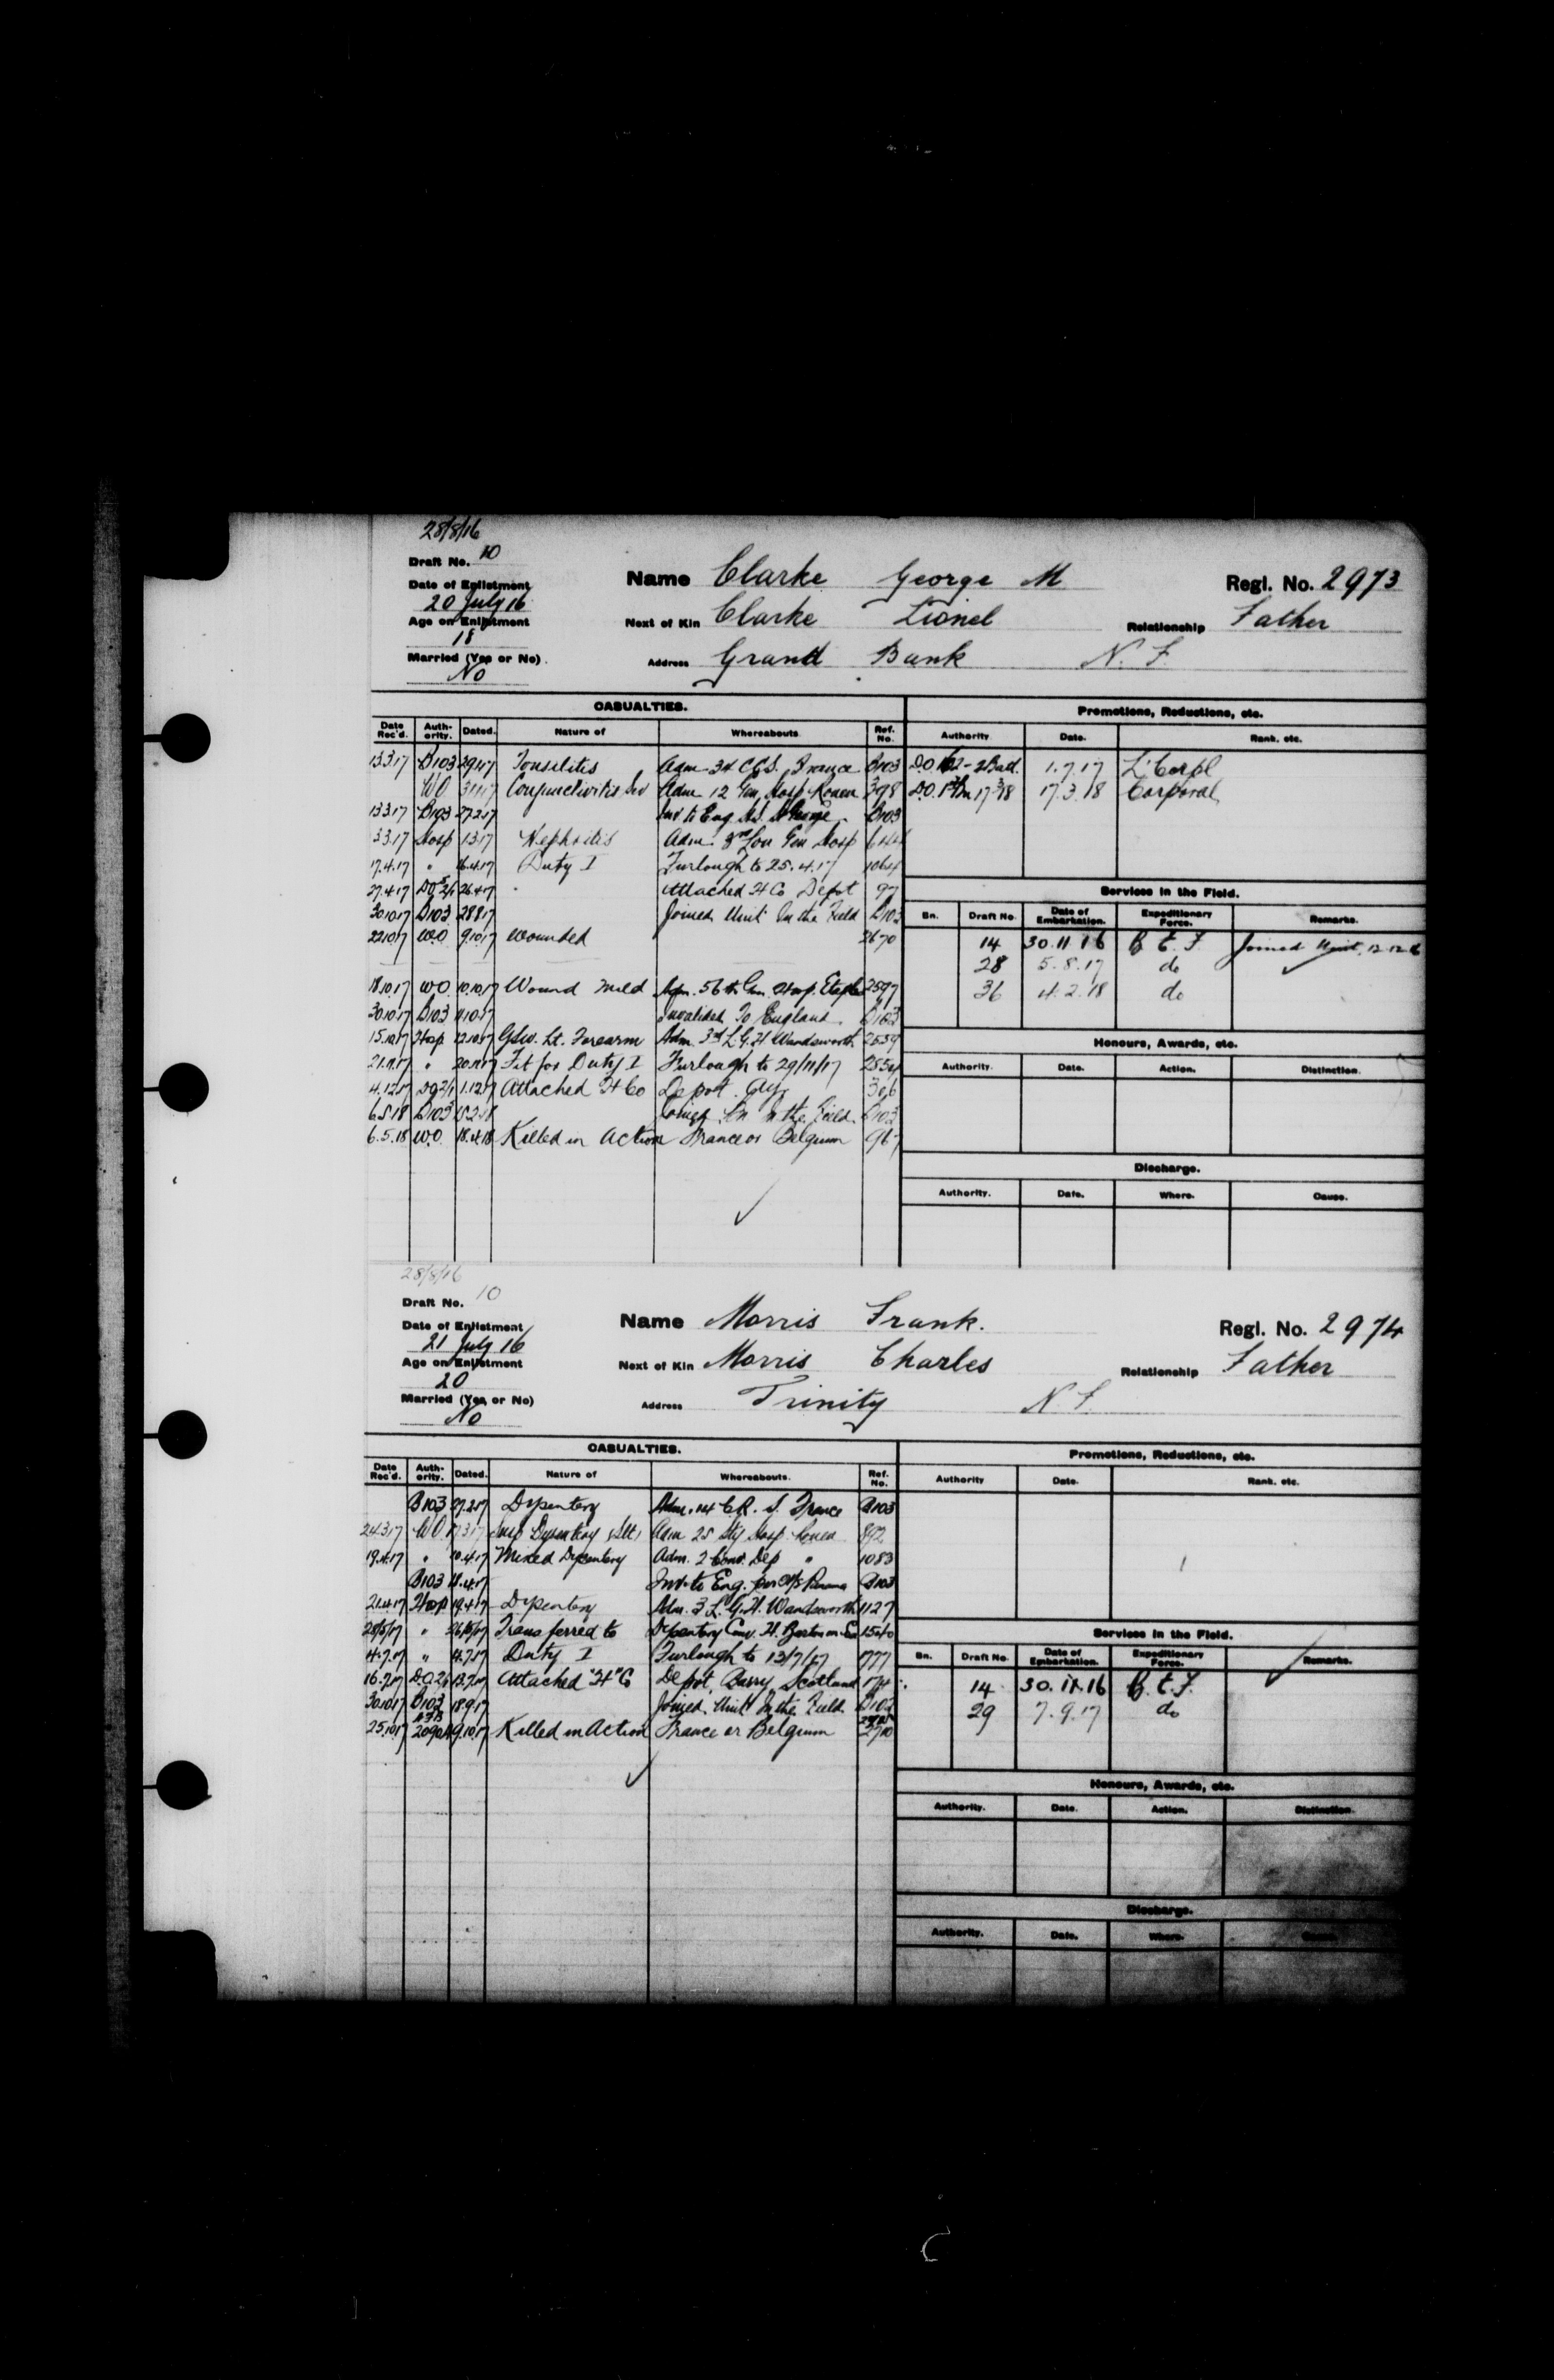 28/8/16
Draft No. 10
Date of Enlistment
20 July 16
Age on Enlistment
18
Married (Yes or No)
No
Name Clarke George M
Regl. No. 2973
Next of Kin Clarke Lionel
Relationship Father
Address Grand Bank N. F.
CASUALTIES.
Date Rec'd. Authority. Dated. Nature of Whereabouts Ref. No.
13.3.17 B103 Tonsilitis Adm 34 CCS. France B103
WO Conjunctivitis Adm 12 Gen Hosp Rouen 398
13.3.17 B103 27.2.17 Inv to Eng B103
3.3.17 Hosp 1.3.17 Nephritis Adm 3rd Lon Gen Hosp
17.4.17 " 16.4.17 Duty I Furlough to 25.4.17 1064
27.4.17 26.4.17 Attached H Co Depot 97
30.10.17 B103 28.8.17 Joined Unit In the Field B103
22.10.17 W.O. 9.10.17 Wounded 2670
18.10.17 W.O. 10.10.17 Wound Mild Adm. 56th Gen. Hosp. Etaples 2597
30.10.17 B103 Invalided To England B103
Hosp GSW. Lt. Forearm Adm. 3rd L.G.H Wandsworth 2559
21.11.17 " 20.11.17 Fit for Duty I Furlough to 29/11/17
4.12.17 1.12.17 Attached H Co Depot Ayr 306
6.5.18 B103 In the Field B103
6.5.18 W.O. 18.4.18 Killed in Action France or Belgium
Promotions, Reductions, etc.
Authority Date. Rank. etc.
1.7.17 L'Corpl
17.3.18 Corporal
Services in the Field.
Bn. Draft No. Date of Embarkation. Expeditionary Force. Remarks.
14 30.11.16 B. E. F. Joined Unit. 12.12.16
28 5.8.17 do
36 4.2.18 do
Honours, Awards, etc.
Authority. Date. Action. Distinction.
Discharge.
Authority. Date. Where. Cause.
28/8/16
Draft No. 10
Date of Enlistment
21 July 16
Age on Enlistment
20
Married (Yes or No)
No
Name Morris Frank.
Regl. No. 2974
Next of Kin Morris Charles
Relationship Father
Address Trinity N. F.
CASUALTIES.
Date Rec'd. Authority. Dated. Nature of Whereabouts. Ref. No.
B103 27.2.17 Dysentery Adm. 14 C.R.S. France B103
24.3.17 WO Dysentery Adm 25 Sty Hosp Rouen 892
19.4.17 " 10.4.17 Mixed Dysentery Adm. 2 Conv. Dep " 1083
B103 Inv. to Eng. per B103
21.4.17 Hosp 19.4.17 Dysentery Adm. 3 L.G.H. Wandsworth 1127
28/5/17 " 26/5/17 Transferred to Dysentery Conv. H. Barton on Sea
4.7.17 " 4.7.17 Duty I Furlough to 13/7/17 1777
16.7.17 Attached "H" Co Depot, Barry, Scotland 174
30.10.17 B103 18.9.17 Joined Unit In the Field B103
25.10.17 9.10.17 Killed in Action France or Belgium 2710
Promotions, Reductions, etc.
Authority Date. Rank. etc.
Services in the Field.
Bn. Draft No. Date of Embarkation. Expeditionary Force. Remarks.
14 30.11.16 B. E. F.
29 7.9.17 do
Honours, Awards, etc.
Authority. Date. Action. Distinction.
Discharge.
Authority. Date. Where.